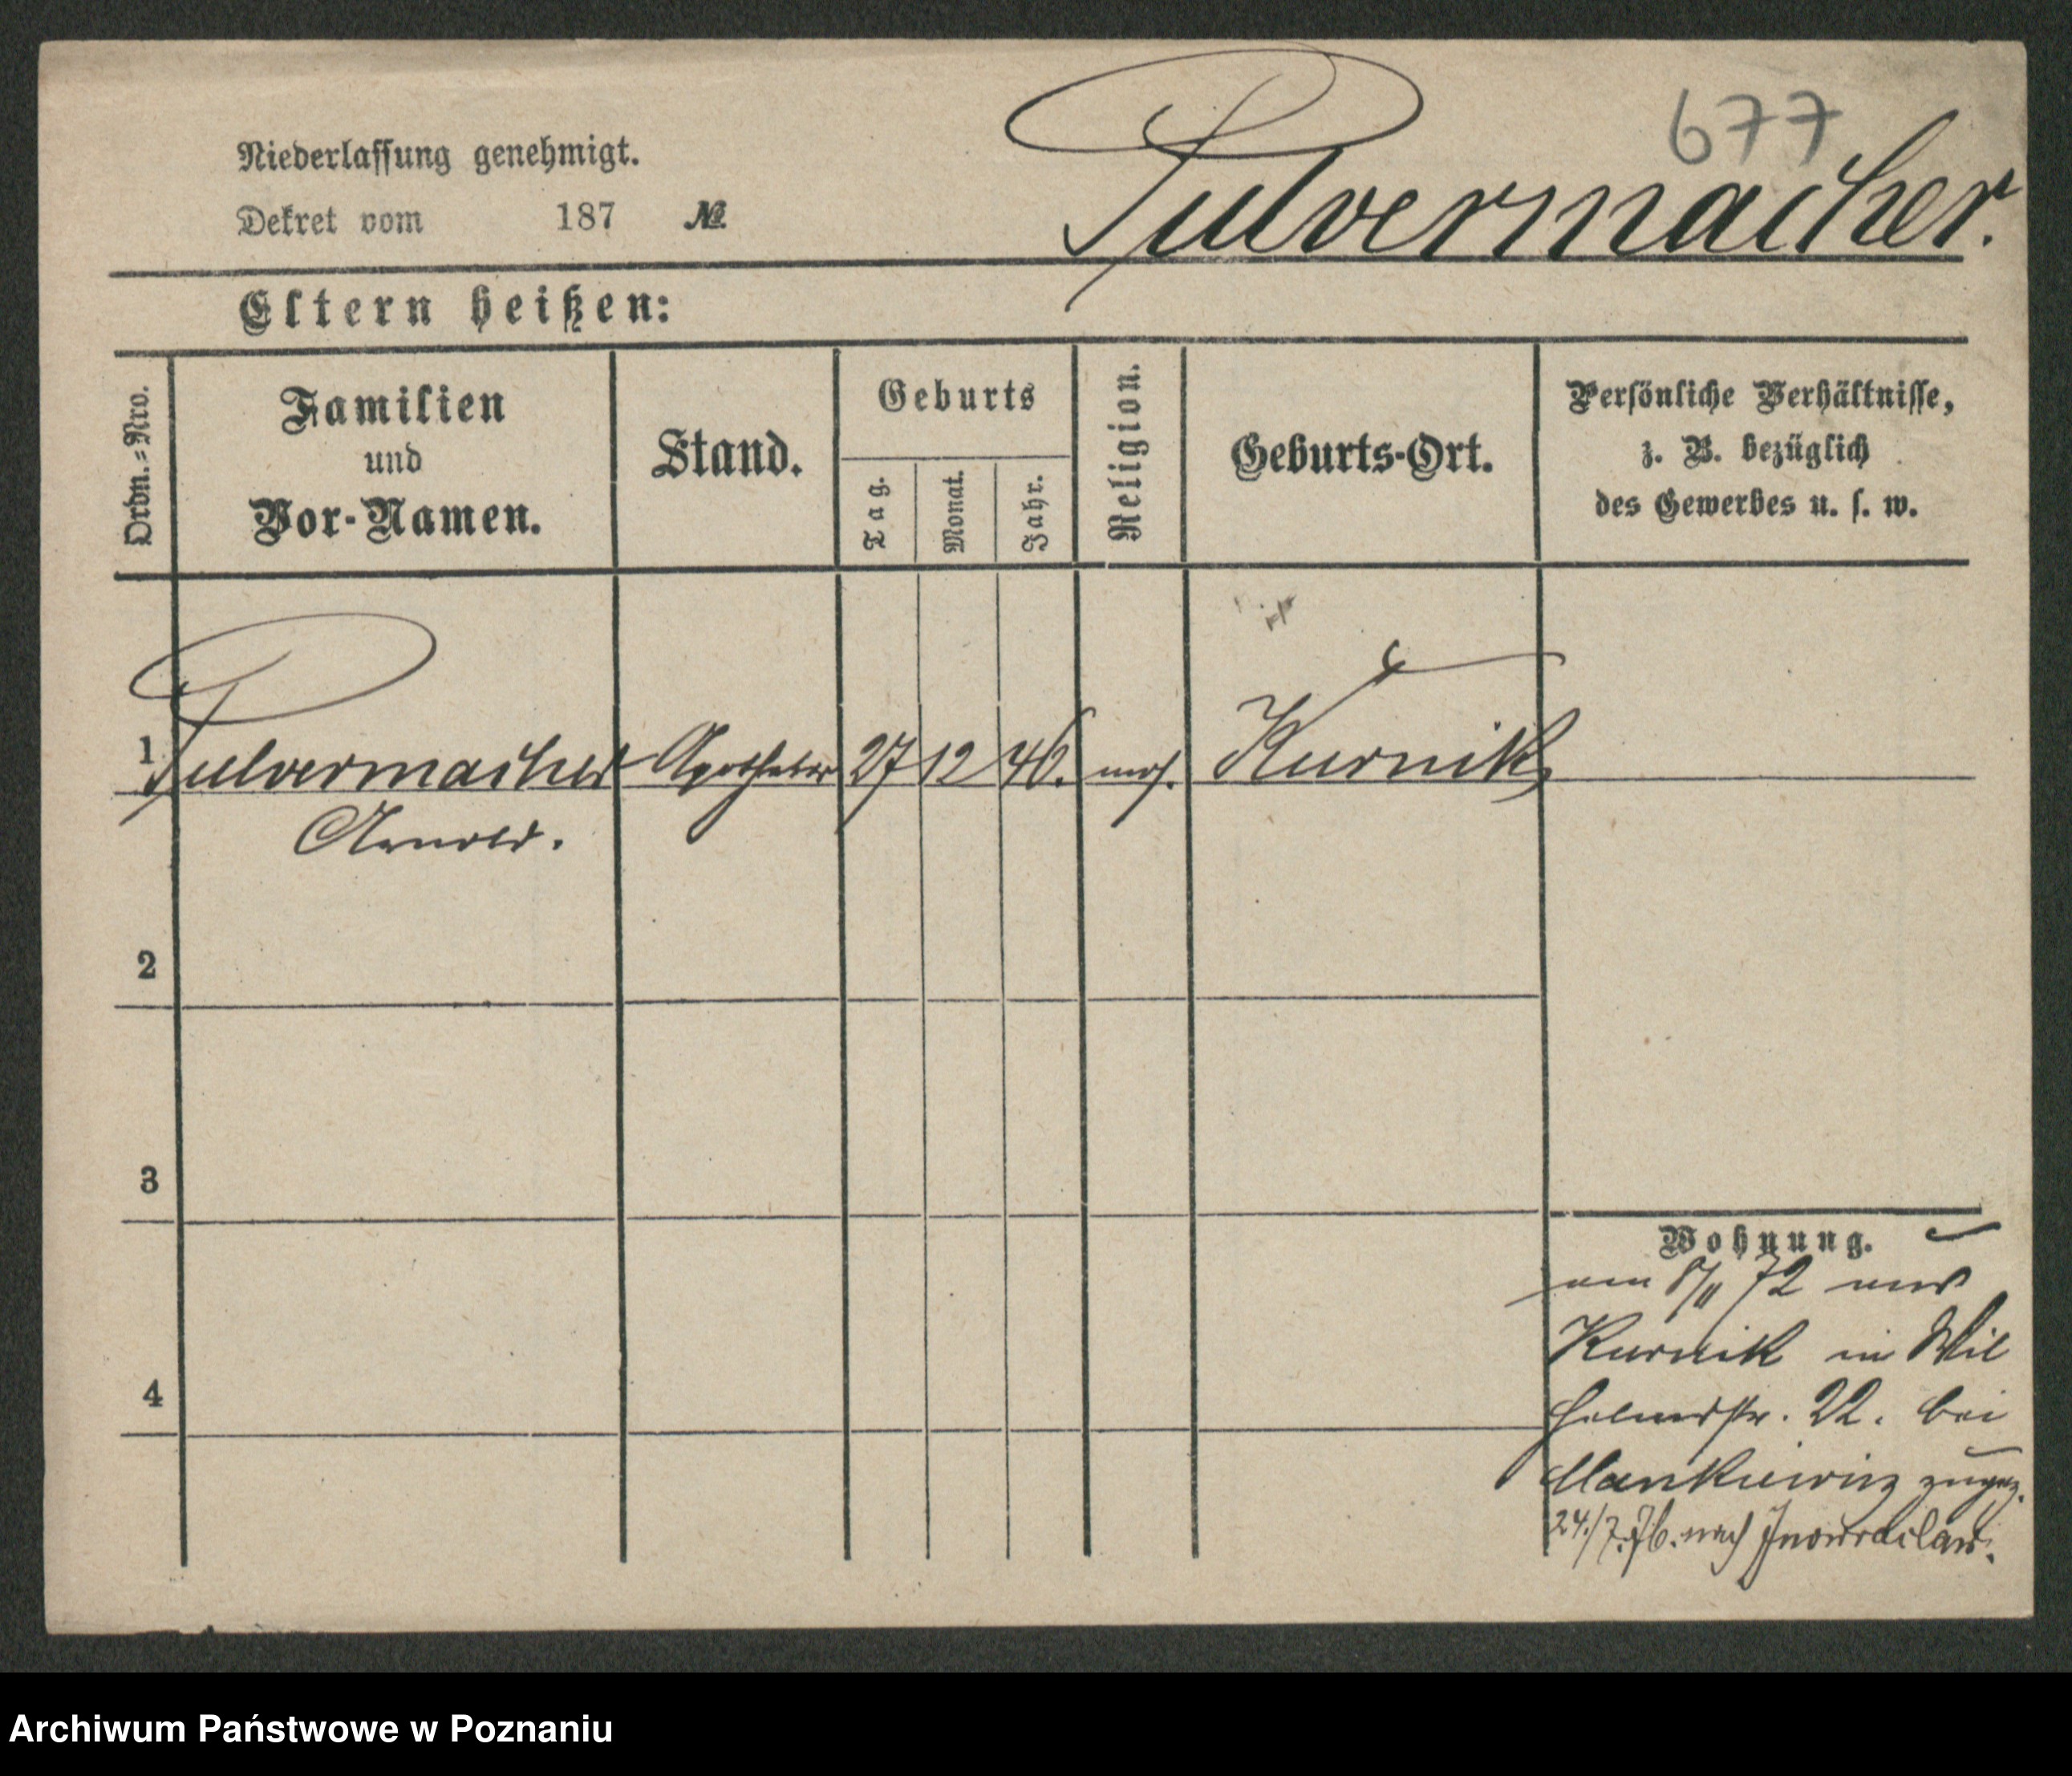 677
Niederlassung genehmigt.
Pulvermacher.
Dekret vom 187 №
Eltern heißen:
Ordn.=Nro.
Familien
und
Vor-Namen.
Stand.
Geburts
Tag.
Monat.
Jahr.
Religion.
Geburts-Ort.
Persönliche Verhältnisse,
z. B. bezüglich
des Gewerbes u. s. w.
1 Pulvermacher Apotheker 27 12 46. mos. Kurnik
Arnold.
2
3
4
Wohnung.
72
Kurnik in Wil
helmstr. 22. bei
Mankiewicz zugez.
24./7.76. nach Inowraclaw.
Archiwum Państwowe w Poznaniu